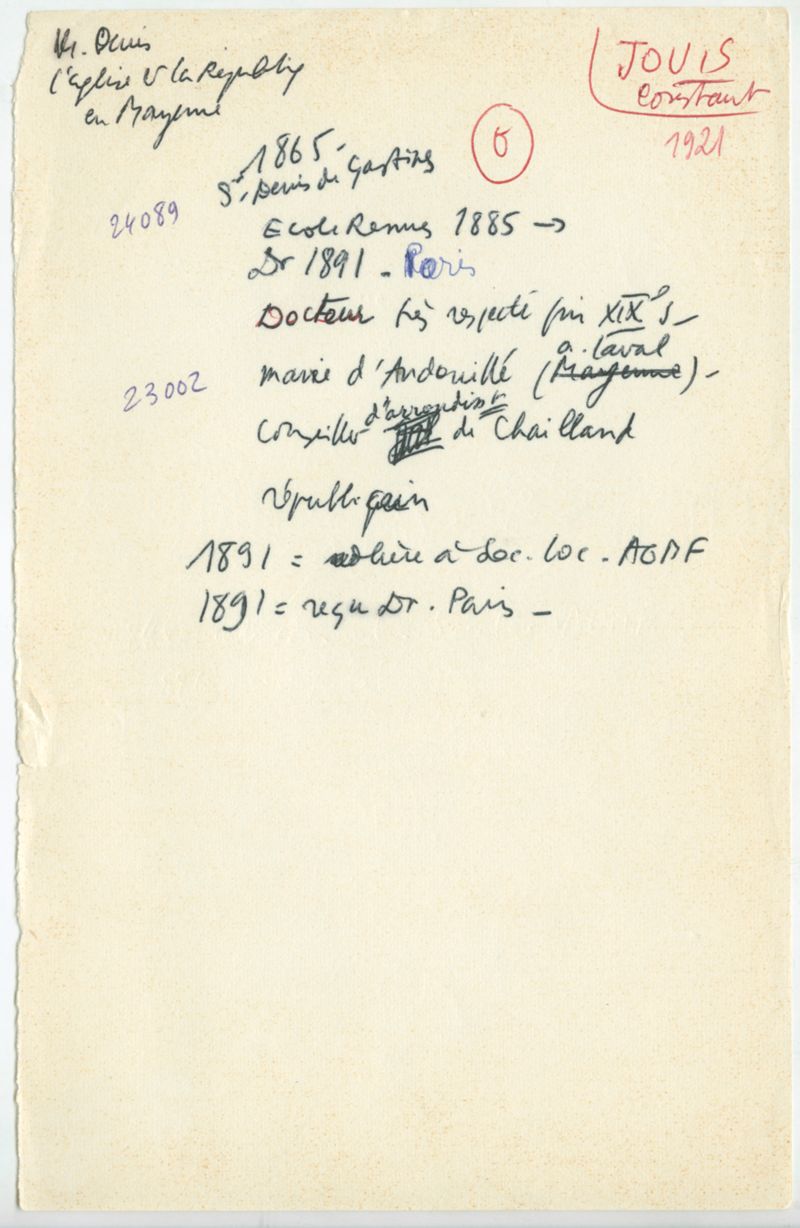 M. Denis
l'Eglise & la République
en Mayenne
JOUIS
Constant
1921
1865 -
St Denis de Gastines
24089
Ecole Rennes 1885 →
Dr 1891 - Paris
Docteur très respecté fin XIXe s -
a. Laval
maire d'Andouillé (Mayenne) -
23002
d'arrondisst
Conseiller de Chailland
républicain
1891 = adhère à Soc. loc. AGMF
1891 = reçu Dr. Paris -